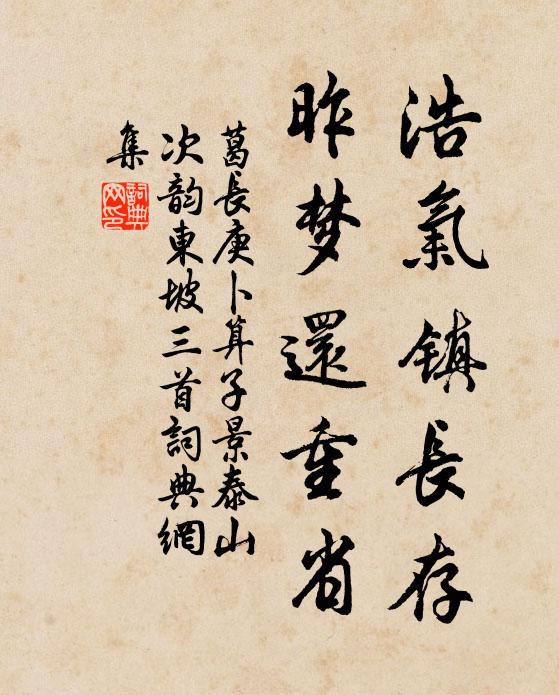 浩氣鎮長存
昨梦還重省
葛長庚卜算子景泰山
次韵東坡三首詞典網
集
詞典
网印